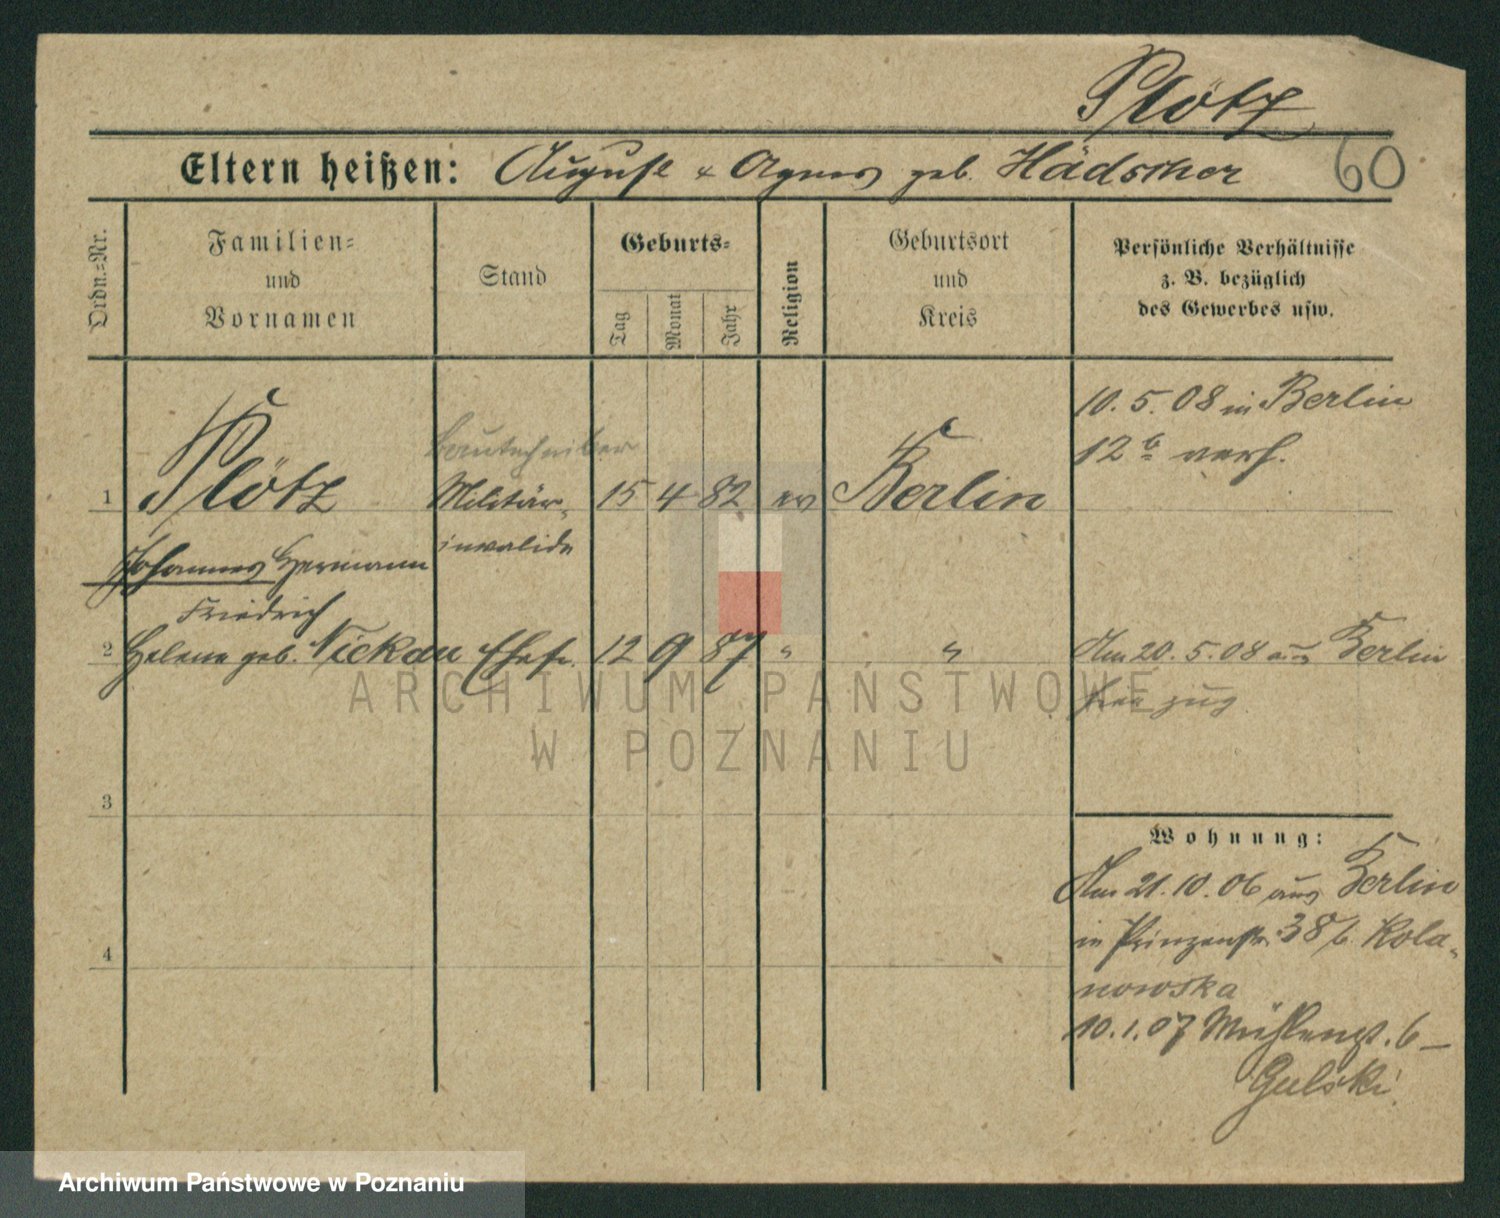 Plötz
Eltern heißen: August & Agnes geb. Hädscher
60
Ordn.-Nr.
Familien- und Vornamen
Stand
Geburts-
Tag
Monat
Jahr
Religion
Geburtsort und Kreis
Persönliche Verhältnisse
z. B. bezüglich
des Gewerbes usw.
10. 5. 08 in Berlin
12 b verh.
Bautechniker
1 Plötz Militär- 15 4 82 ev Berlin
invalide
Johannes Hermann
Friedrich
2 Helene geb. Nickau Ehefr. 12 9 87 " "
Am 20. 5. 08 aus Berlin
zug
3
Wohnung:
Am 21. 10. 06 aus Berlin
in Prinzenstr. 38 b. Kola-
nowska
4
10. 1. 07 Mühlenst. 6 –
Gulski
ARCHIWUM PAŃSTWOWE
W POZNANIU
Archiwum Państwowe w Poznaniu